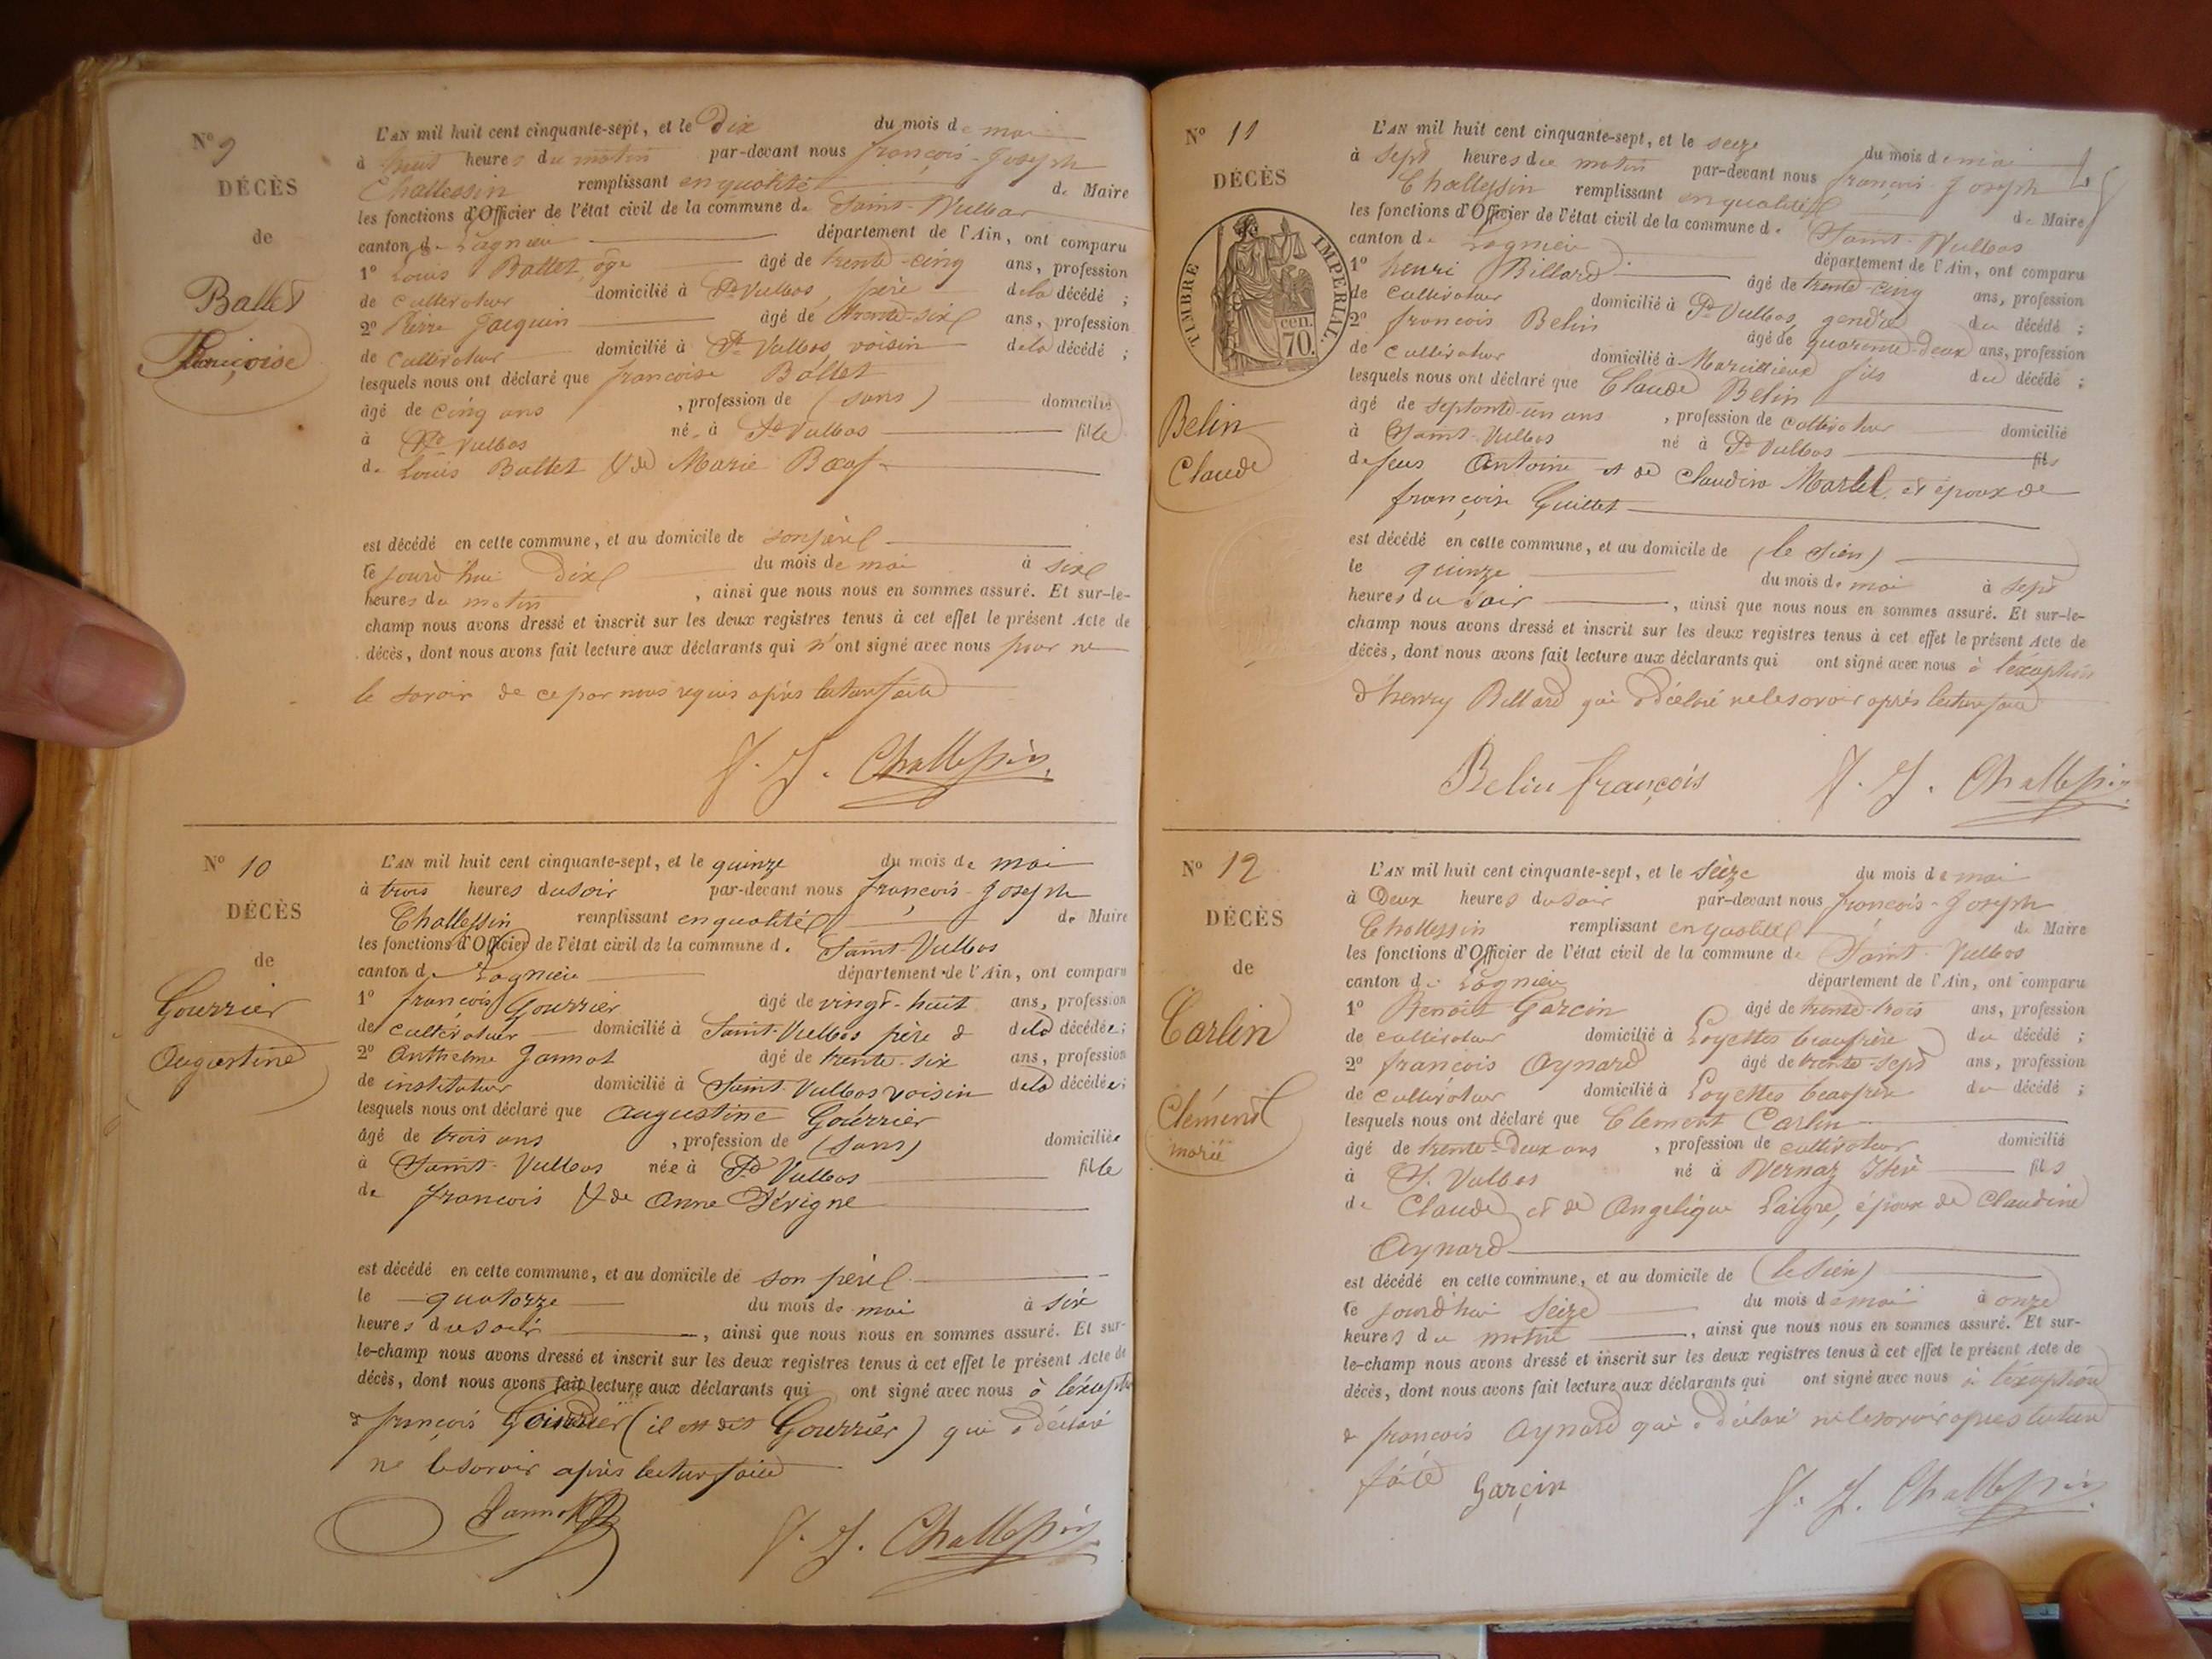 N° 9
DÉCÈS
de
Ballet
Françoise
L'AN mil huit cent cinquante-sept, et le Dix du mois de mai
à heures du matin par-devant nous françois-Joseph
Challessin remplissant en qualité de Maire
les fonctions d'Officier de l'état civil de la commune de Saint-Vulbas
canton de Lagnieu département de l'Ain, ont comparu
1° Louis Ballet, âgé âgé de trente-cinq ans, profession
de cultivateur domicilié à St Vulbas, père de la décédé ;
2° Pierre Jacquin âgé de trente-six ans, profession
de cultivateur domicilié à St Vulbas voisin de la décédé ;
lesquels nous ont déclaré que françoise Ballet
âgé de cinq ans , profession de (sans) domicilié
à St Vulbas né à St Vulbas fille
de Louis Ballet & de Marie Bœuf
est décédé en cette commune, et au domicile de son père
le jourd'hui Dix du mois de mai à six
heures du matin , ainsi que nous nous en sommes assuré. Et sur-le-
champ nous avons dressé et inscrit sur les deux registres tenus à cet effet le présent Acte de
décès, dont nous avons fait lecture aux déclarants qui n'ont signé avec nous pour ne
le savoir de ce par nous requis après lecture faite
F. J. Challessin
N° 10
DÉCÈS
de
Gourrier
Augustine
L'AN mil huit cent cinquante-sept, et le quinze du mois de mai
à trois heures du soir par-devant nous françois-Joseph
Challessin remplissant en qualité de Maire
les fonctions d'Officier de l'état civil de la commune d. Saint-Vulbas
canton de Lagnieu département de l'Ain, ont comparu
1° françois Gourrier âgé de vingt-huit ans, profession
de cultivateur domicilié à Saint-Vulbas père de la décédée ;
2° Anthelme Jannot âgé de trente-six ans, profession
de instituteur domicilié à Saint-Vulbas voisin de la décédée ;
lesquels nous ont déclaré que augustine Gourrier
âgé de trois ans , profession de (sans) domiciliée
à Saint-Vulbas née à St Vulbas fille
de francois & de Anne Sévigne
est décédé en cette commune, et au domicile de son père
le quatorze du mois de mai à six
heures du soir , ainsi que nous nous en sommes assuré. Et sur-
le-champ nous avons dressé et inscrit sur les deux registres tenus à cet effet le présent Acte de
décès, dont nous avons fait lecture aux déclarants qui ont signé avec nous à l'éxception
de françois (il est dit Gourrier) qui a déclaré
ne le savoir après lecture faite
Jannot
F. J. Challessin
N° 11
DÉCÈS
TIMBRE IMPERIAL.
cen.
70.
Belin
Claude
L'AN mil huit cent cinquante-sept, et le seize du mois de mai
à sept heures du matin par-devant nous françois-Joseph
Challessin remplissant en qualité de Maire
les fonctions d'Officier de l'état civil de la commune d. Saint-Vulbas
canton d. Lagnieu département de l'Ain, ont comparu
1° henri Billard âgé de trente-cinq ans, profession
de cultivateur domicilié à St Vulbas, gendre du décédé ;
2° francois Belin âgé de quarente-deux ans, profession
de cultivateur domicilié à Marcillieux fils du décédé ;
lesquels nous ont déclaré que Claude Belin
âgé de septante-un ans , profession de cultivateur domicilié
à Saint-Vulbas né à St Vulbas fils
de feus Antoine et de Claudine Martel et époux de
françoise Guillet
est décédé en cette commune, et au domicile de (le sien)
le quinze du mois de mai à sept
heures du soir , ainsi que nous nous en sommes assuré. Et sur-le-
champ nous avons dressé et inscrit sur les deux registres tenus à cet effet le présent Acte de
décès, dont nous avons fait lecture aux déclarants qui ont signé avec nous à l'éxception
d'henry Billard qui a déclaré ne le savoir après lecture faite
Belin françois F. J. Challessin
N° 12
DÉCÈS
de
Carlin
Clément
marié
L'AN mil huit cent cinquante-sept, et le Seize du mois de mai
à Deux heures du soir par-devant nous françois-Joseph
Challessin remplissant en qualité de Maire
les fonctions d'Officier de l'état civil de la commune de Saint-Vulbas
canton d. Lagnieu département de l'Ain, ont comparu
1° Benoit Garcin âgé de trente-trois ans, profession
de cultivateur domicilié à Loyettes beaufrère du décédé ;
2° francois Aynard âgé de trente-sept ans, profession
de cultivateur domicilié à Loyettes beaufrère du décédé ;
lesquels nous ont déclaré que Clement Carlin
âgé de trente-deux ans , profession de cultivateur domicilié
à St Vulbas né à Vernaz Isère fils
de Claude et de Angelique Laigre, époux de Claudine
Aynard
est décédé en cette commune, et au domicile de (le sien)
le jourd'hui Seize du mois de mai à onze
heures du matin , ainsi que nous nous en sommes assuré. Et sur-
le-champ nous avons dressé et inscrit sur les deux registres tenus à cet effet le présent Acte de
décès, dont nous avons fait lecture aux déclarants qui ont signé avec nous à l'éxception
de francois Aynard qui a déclaré ne le savoir apres lecture
faite Garçin F. J. Challessin